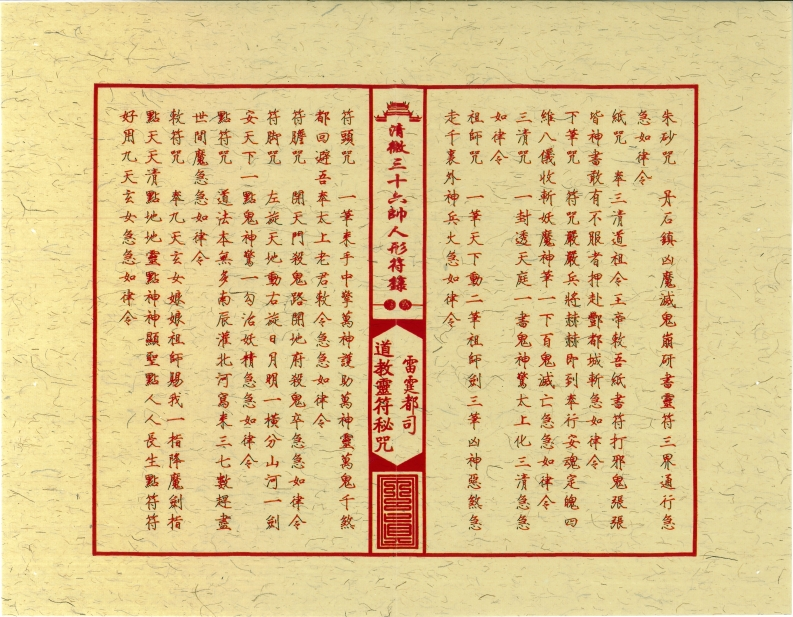 朱砂咒　丹石鎮凶魔滅鬼崩研書靈符三界通行急
急如律令
紙咒　奉三清道祖令玉帝敕吾紙書符打邪鬼張張
皆神書敢有不服者押赴酆都城斬急如律令
下筆咒　符咒嚴嚴兵將赫赫即到奉行安魂定魄四
維八儀收斬妖魔神筆一下百鬼滅亡急急如律令
三清咒　一封透天庭一書鬼神驚太上化三清急急
如律令
祖師咒　一筆天下動二筆祖師劍三筆凶神惡煞急
走千裏外神兵火急如律令
清微三十六帥人形符錄
雷霆都司
道教靈符秘咒
符頭咒　一筆來手中擎萬神護助萬神靈萬鬼千煞
都回避吾奉太上老君敕令急急如律令
符膽咒　開天門殺鬼路開地府殺鬼卒急急如律令
符腳咒　左旋天地動右旋日月明一橫分山河一劍
安天下一點鬼神驚一勾治妖精急急如律令
點符咒　道法本無多南辰灌北河寫來三七數趕盡
世間魔急急如律令
敕符咒　奉九天玄女娘娘祖師賜我一指降魔劍指
點天天清點地地靈點神神顯聖點人人長生點符符
好用九天玄女急急如律令